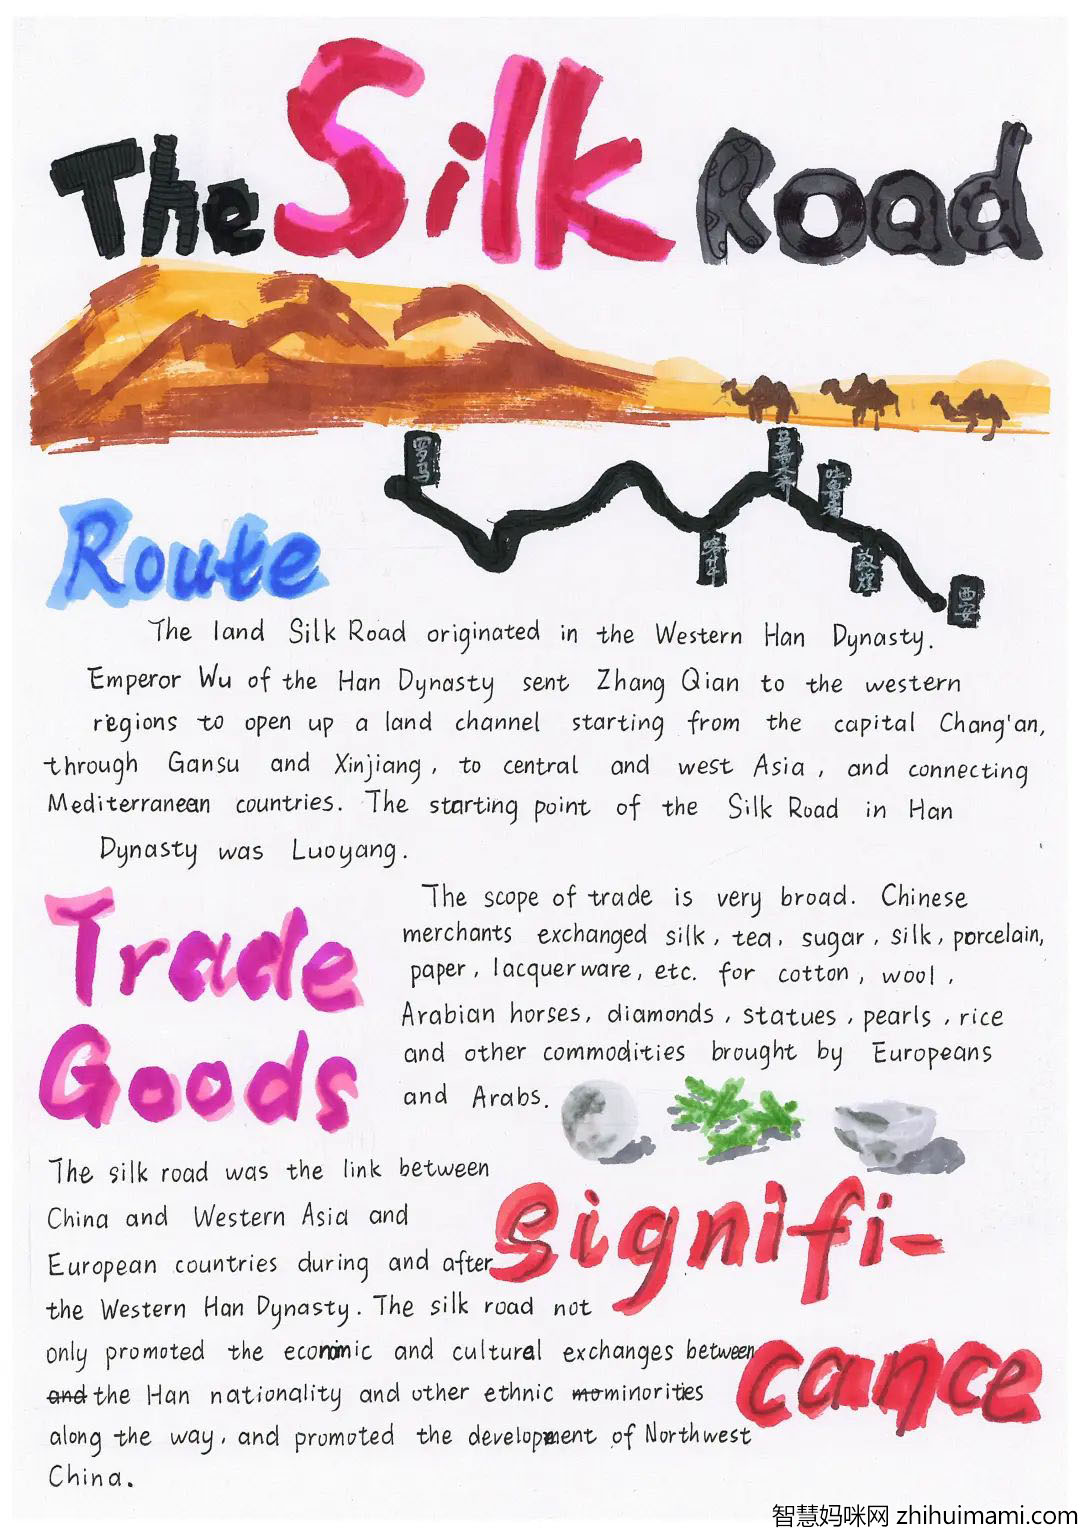 The Silk Road
罗马
乌鲁木齐
吐鲁番
喀什
敦煌
西安
Route
The land Silk Road originated in the Western Han Dynasty.
Emperor Wu of the Han Dynasty sent Zhang Qian to the western
regions to open up a land channel starting from the capital Chang'an,
through Gansu and Xinjiang, to central and west Asia, and connecting
Mediterranean countries. The starting point of the Silk Road in Han
Dynasty was Luoyang.
Trade
Goods
The scope of trade is very broad. Chinese
merchants exchanged silk, tea, sugar, silk, porcelain,
paper, lacquerware, etc. for cotton, wool,
Arabian horses, diamonds, statues, pearls, rice
and other commodities brought by Europeans
and Arabs.
Signifi-
cance
The silk road was the link between
China and Western Asia and
European countries during and after
the Western Han Dynasty. The silk road not
only promoted the economic and cultural exchanges between
and the Han nationality and other ethnic mo minorities
along the way, and promoted the development of Northwest
China.
智慧妈咪网 zhihuimami.com